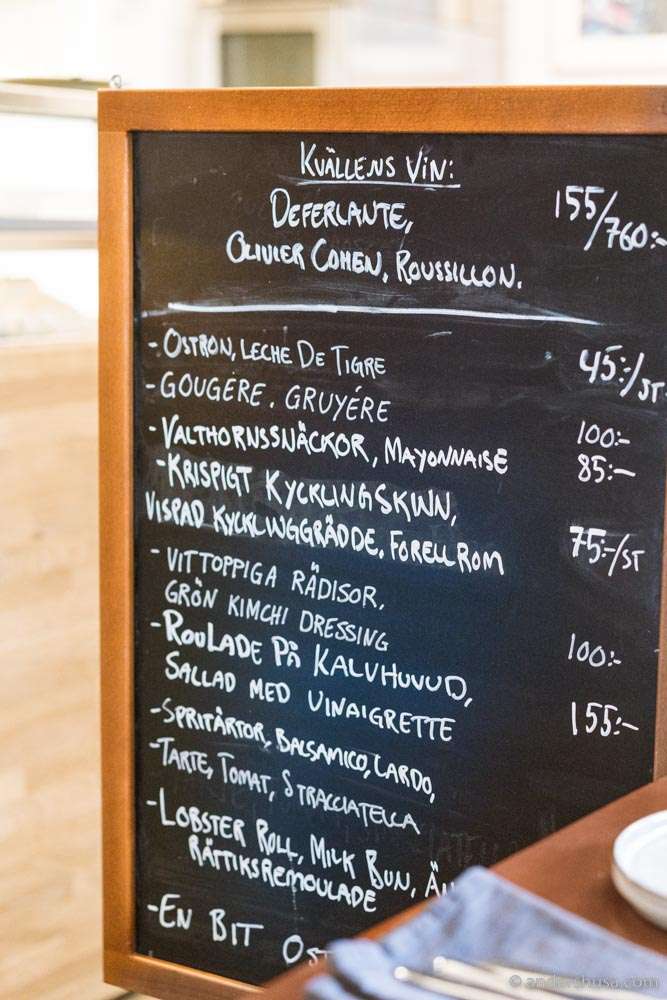 KVÄLLENS VIN:
DEFERLANTE, 155/760:-
OLIVIER COHEN, ROUSSILLON.
-OSTRON, LECHE DE TIGRE 45:-/ST
-GOUGÉRE. GRUYÉRE
-VALTHORNSSNÄCKOR, MAYONNAISE 100:-
-KRISPIGT KYCKLINGSKINN, 85:-
VISPAD KYCKLINGGRÄDDE, FORELLROM 75:-/ST
-VITTOPPIGA RÄDISOR,
GRÖN KIMCHI DRESSING
-ROULADE PÅ KALVHUVUD, 100:-
SALLAD MED VINAIGRETTE 155:-
-SPRITÄRTOR, BALSAMICO, LARDO,
-TARTE, TOMAT, STRACCIATELLA
-LOBSTER ROLL, MILK BUN,
RÄTTIKSREMOULADE
-EN BIT
© andershusa.com